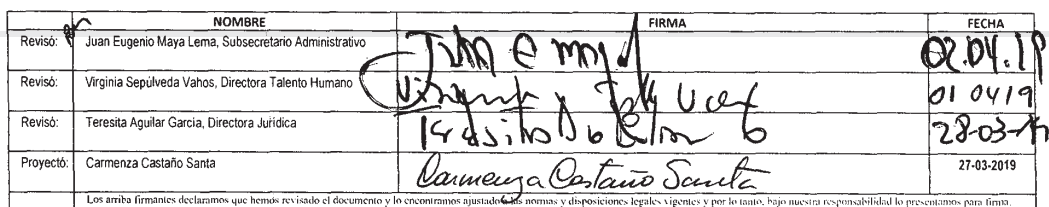 NOMBRE FIRMA FECHA
Revisó: Juan Eugenio Maya Lema, Subsecretario Administrativo Juan e may 02.04.19
Revisó: Virginia Sepúlveda Vahos, Directora Talento Humano Virginia 01 04 19
Revisó: Teresita Aguilar García, Directora Jurídica Teresita 28-03-19
Proyectó: Carmenza Castaño Santa Carmenza Castaño Santa 27-03-2019
Los arriba firmantes declaramos que hemos revisado el documento y lo encontramos ajustado a las normas y disposiciones legales vigentes y por lo tanto, bajo nuestra responsabilidad lo presentamos para firma.